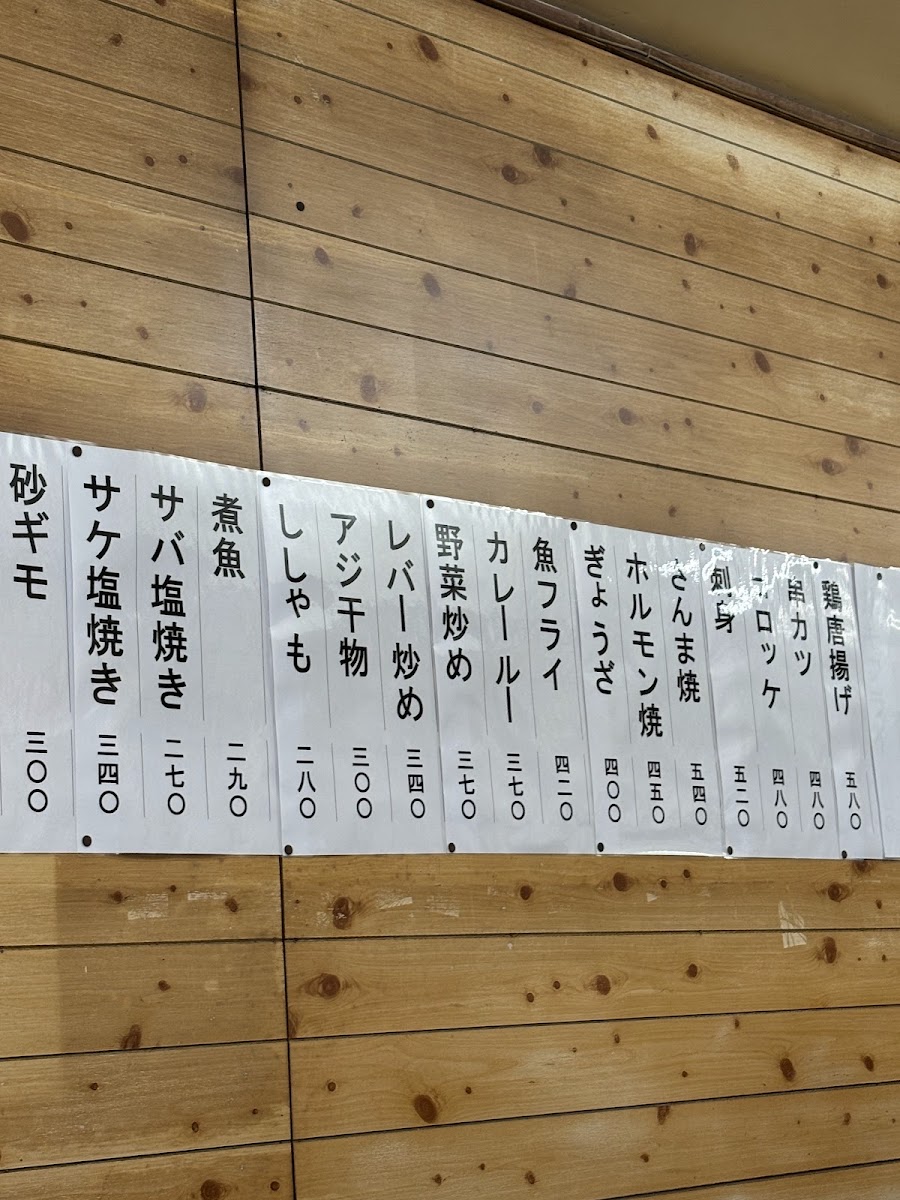 鶏唐揚げ 五八〇
串カツ 四八〇
コロッケ 四八〇
刺身 五二〇
さんま焼 五四〇
ホルモン焼 四五〇
ぎょうざ 四〇〇
魚フライ 四二〇
カレールー 三七〇
野菜炒め 三七〇
レバー炒め 三四〇
アジ干物 三〇〇
ししゃも 二八〇
煮魚 二九〇
サバ塩焼き 二七〇
サケ塩焼き 三四〇
砂ギモ 三〇〇